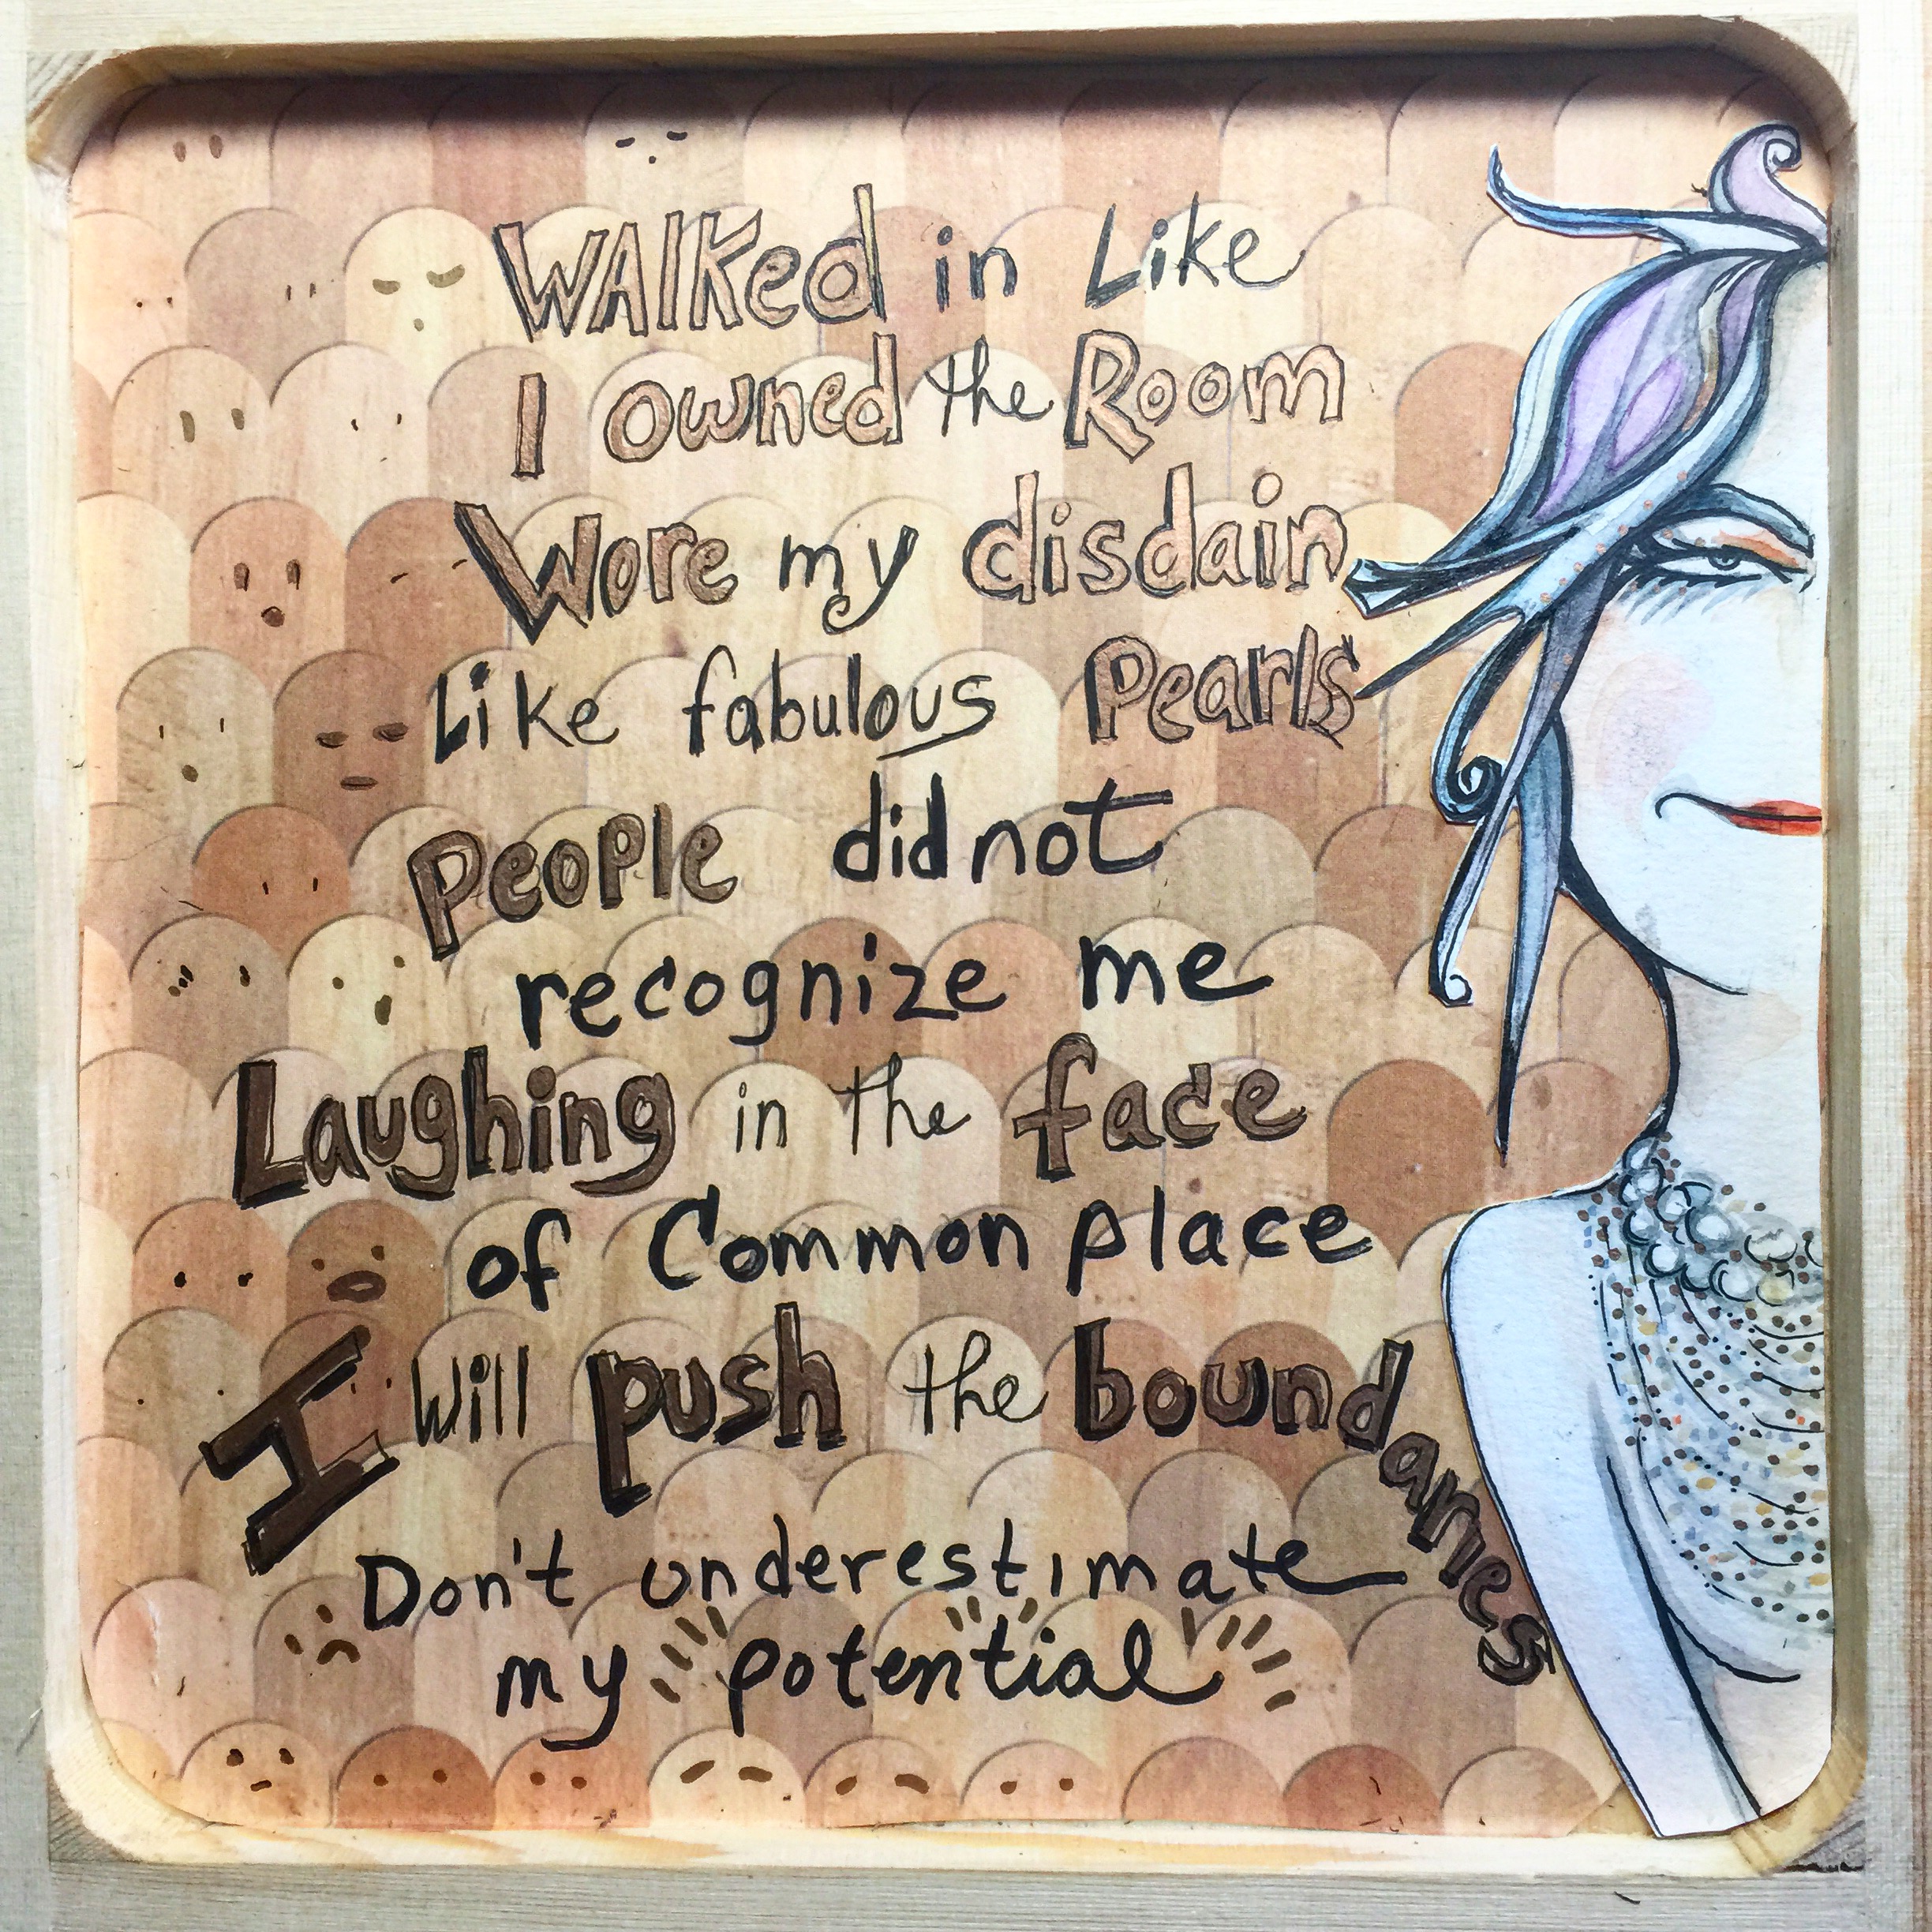 WAlKed in Like
I owned the Room
Wore my disdain
Like fabulous Pearls
People did not
recognize me
Laughing in the face
of Common place
I Will push the boundaries
Don't underestimate
my potential